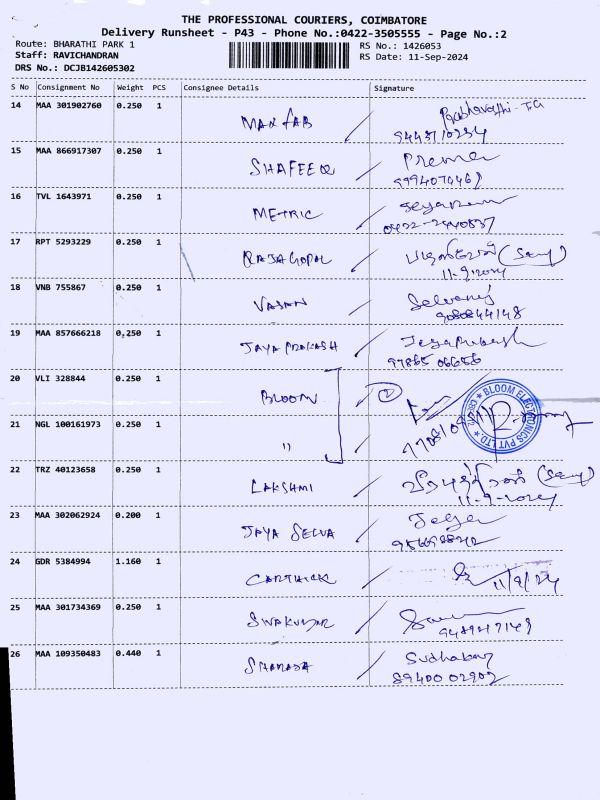 THE PROFESSIONAL COURIERS, COIMBATORE
Delivery Runsheet - P43 - Phone No.:0422-3505555 - Page No.:2
Route: BHARATHI PARK 1
Staff: RAVICHANDRAN
DRS No.: DCJB142605302
RS No.: 1426053
RS Date: 11-Sep-2024
S No Consignment No Weight PCS Consignee Details Signature
14 MAA 301902760 0.250 1 MAX FAB Prabhavathi-T.G
15 MAA 866917307 0.250 1 SHAFEEQ Prema
16 TVL 1643971 0.250 1 METRIC
0422-2440837
17 RPT 5293229 0.250 1 RAJAGOPAL
11-9-2024
18 VNB 755867 0.250 1 VASAN
9080844148
19 MAA 857666218 0.250 1 JAYA PRAKASH Jeyaprakash
97865 06656
20 VLI 328844 0.250 1 BLOOM 2
BLOOM ELECTRONICS PVT LTD
21 NGL 100161973 0.250 1 "
22 TRZ 40123658 0.250 1 LAKSHMI
11-9-2024
23 MAA 302062924 0.200 1 JAYA SELVA Jeya
24 GDR 5384994 1.160 1 CARTHICK 11/9/24
25 MAA 301734369 0.250 1 SIVAKUMAR
26 MAA 109350483 0.440 1 SHARADA Sudhakar
89400 02902